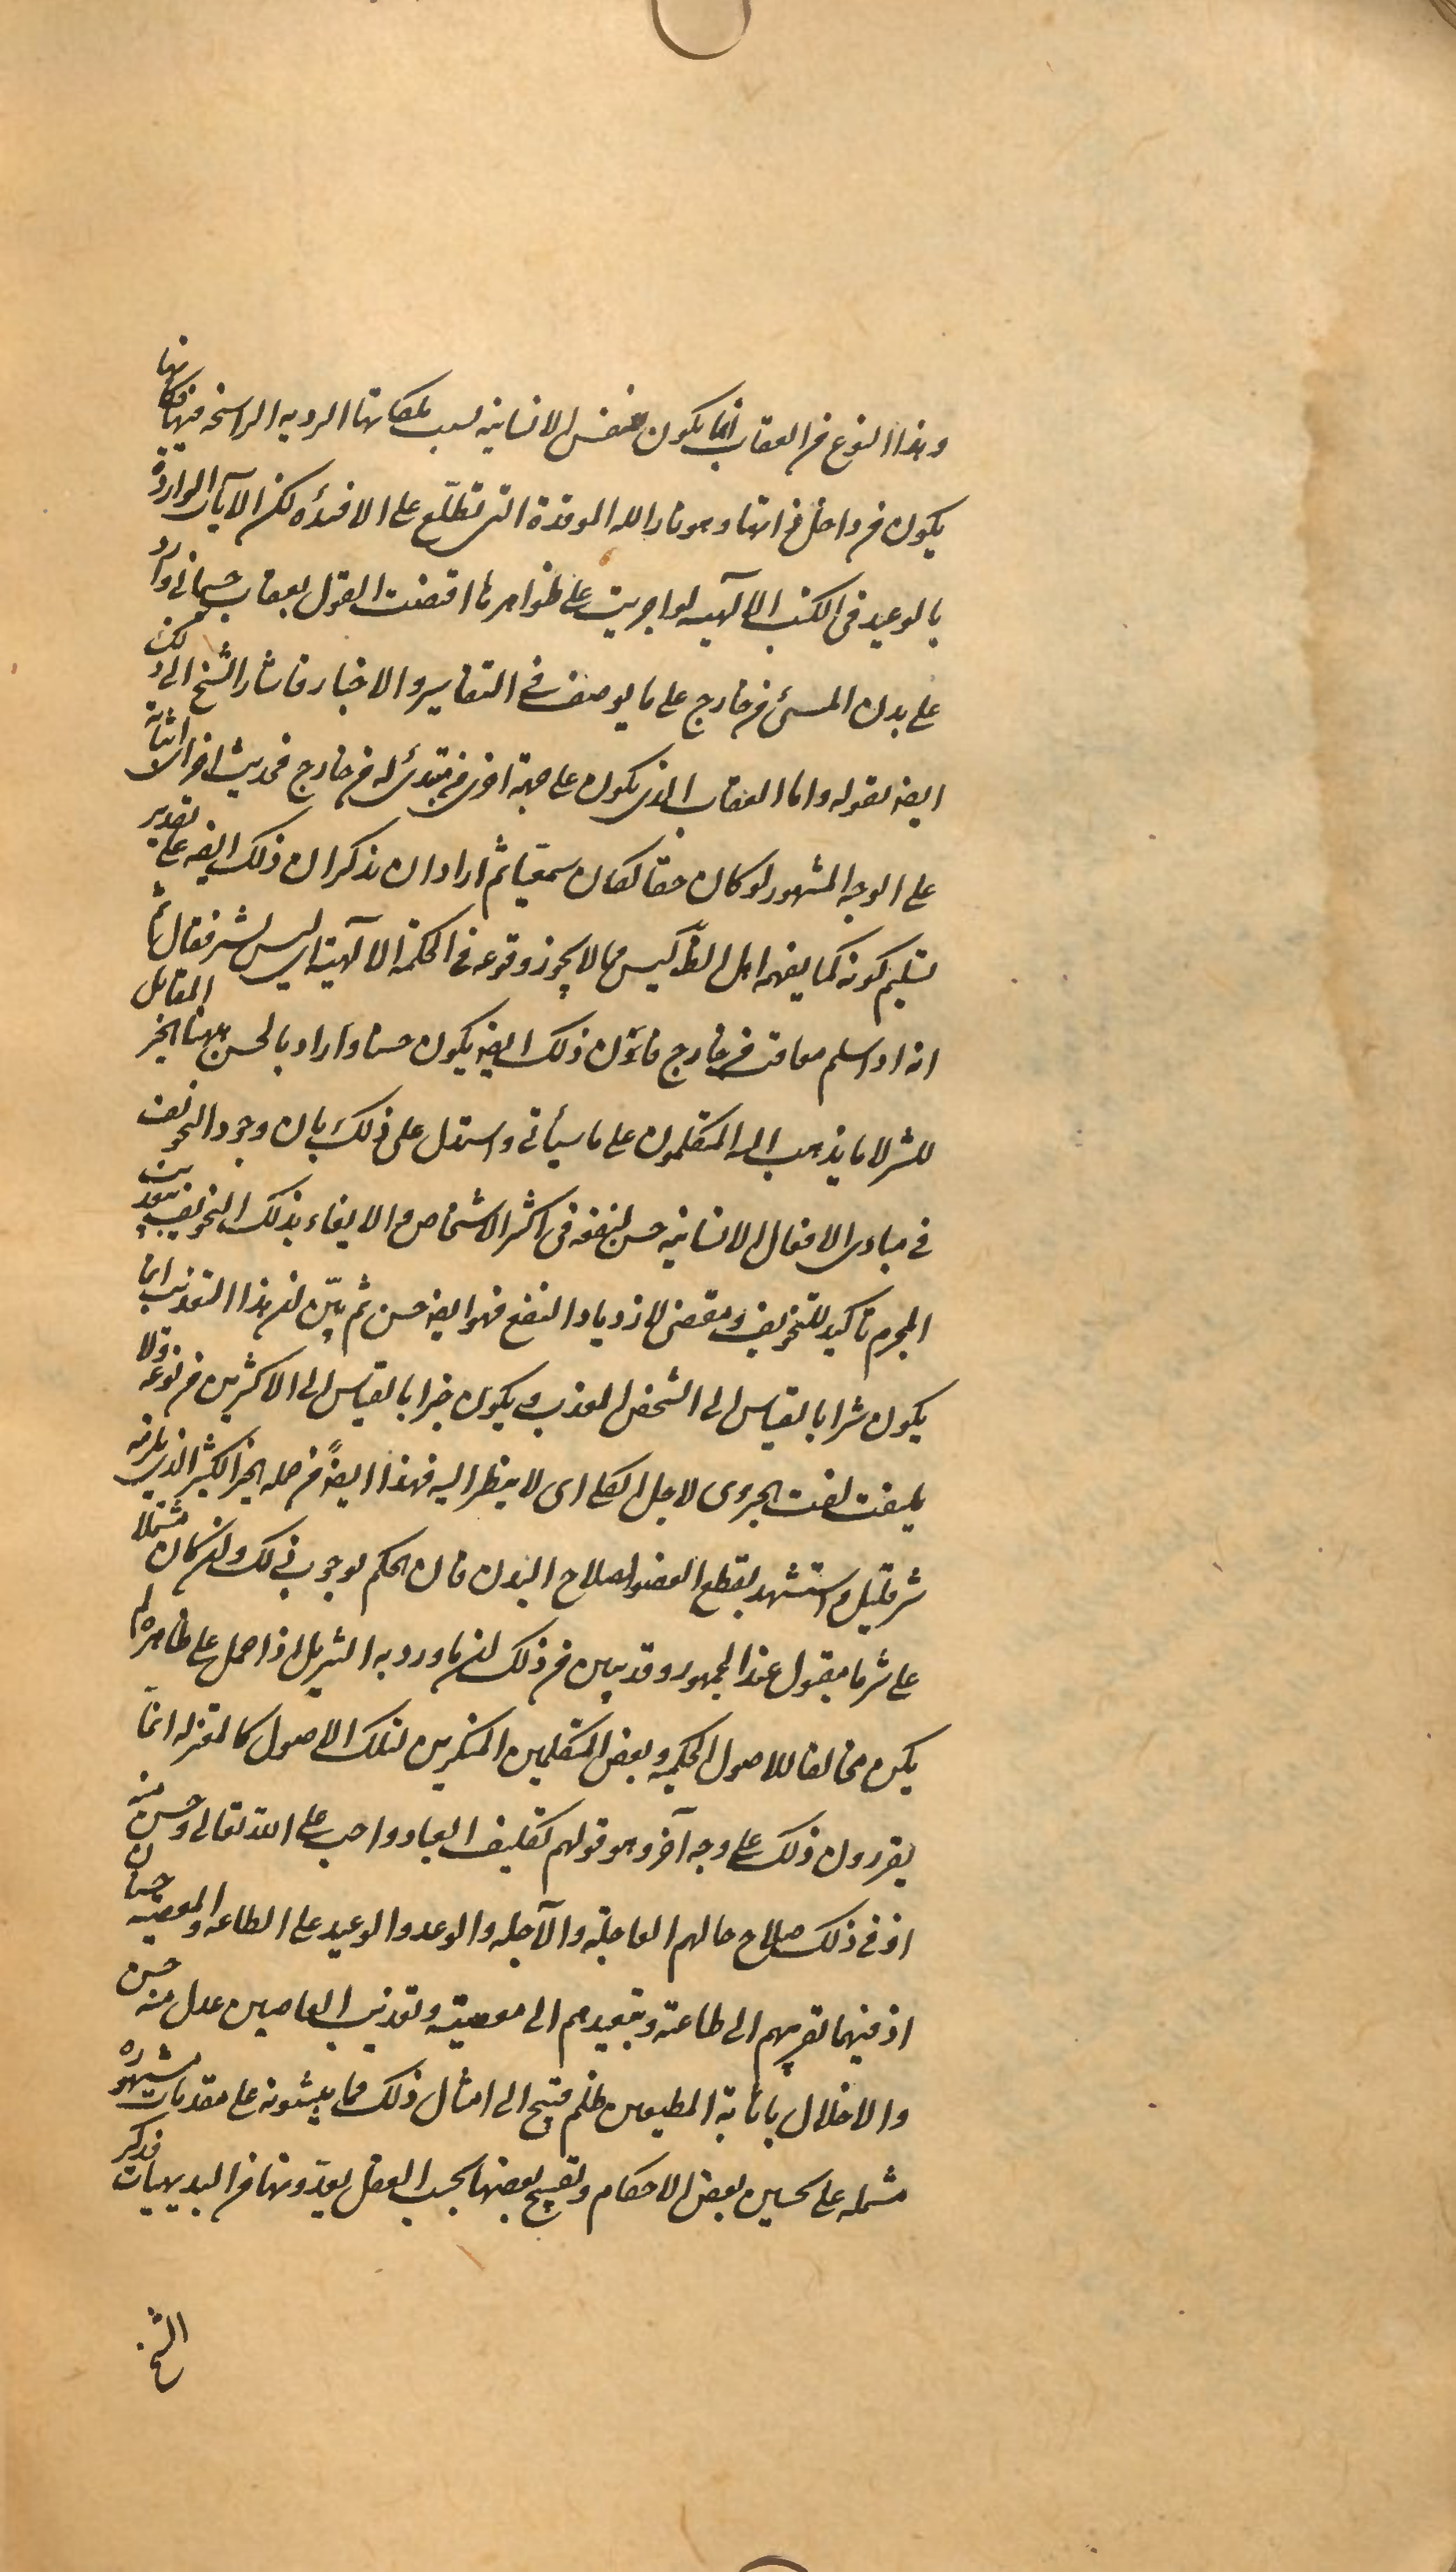 وهذا النوع من العقاب انما يكون للنفس الانسانيه لسبب ملكاتها الرديه الراسخه فيها فكانها
يكون من داخل ذاتها وهو نار الله الموقدة التى تطلّع على الافئده لكن الآيات الواردة
بالوعيد فى الكتب الالآهيه لو اجريت على ظواهرها اقتضت القول بعقاب جسمانى وارد
على بدن المسئ من خارج على ما يوصف فى التفاسير والاخبار فاشار الشيخ الى ذلك
ايضه بقوله واما العقاب الذى يكون على جهة اخرى من مبتدئ له من خارج فحديث اخر اثباته
على الوجه المشهور لو كان حقا لكان سمعيا ثم اراد ان يذكر ان ذلك ايضه على تقدير
تسليم كونه كما يفهمه اهل الظّ ليس مما لا يجوز وقوعه فى الحكمة الالآهية اى ليس بشر فقال ثم
انه اذا سلم معاقب من خارج فانّ ذلك ايضه يكون حسنا واراد بالحسن ههنا الخير المقابل
للشر لا ما يذهب اليه المتكلمون على ما سيأتى واستدل على ذلك بان وجود التخويف
فى مبادى الافعال الانسانيه حسن لنفعه فى اكثر الاشخاص والايفاء بذلك التخويف بتعذيب
المجرم تاكيد للتخويف ومقتض لازدياد النفع فهو ايضه حسن ثم بيّن ان هذا التعذيب انما
يكون شرا بالقياس الى الشخص المعذب ويكون خيرا بالقياس الى الاكثرين من نوعه ولا
يلتفت لفت الجزوى لاجل الكلى اى لا ينظر اليه فهذا ايضهً من جمله الخير الكثير الذى يلزمه
شر قليل واستشهد بقطع العضو لصلاح البدن فان الحكم بوجوب ذلك وان كان مشتملا
على شر ما مقبول عند الجمهور وقد تبين من ذلك ان ما ورد به التنزيل اذا حمل على ظاهره لم
يكن مخالفا للاصول الحكميه وبعض المتكلمين المنكرين لتلك الاصول كالمعتزله انما
يقررون ذلك على وجه آخر وهو قولهم تكليف العباد واجب على الله تعالى وحسن منه
اذ فى ذلك صلاح حالهم العاجلة والآجله والوعد والوعيد على الطاعه والمعصيه حسنان
اذ فيهما تقريبهم الى طاعته وتبعيدهم الى معصيته وتعذيب العاصين عدل منه حسن
والاخلال باثابة المطيعين ظلم قبيح الى امثال ذلك مما يبنونه على مقدمات مشهوره
مشمله على تحسين بعض الاحكام وتقبيح بعضها بحسب العقل يعدّونها من البديهيات فذكر
الشيخ